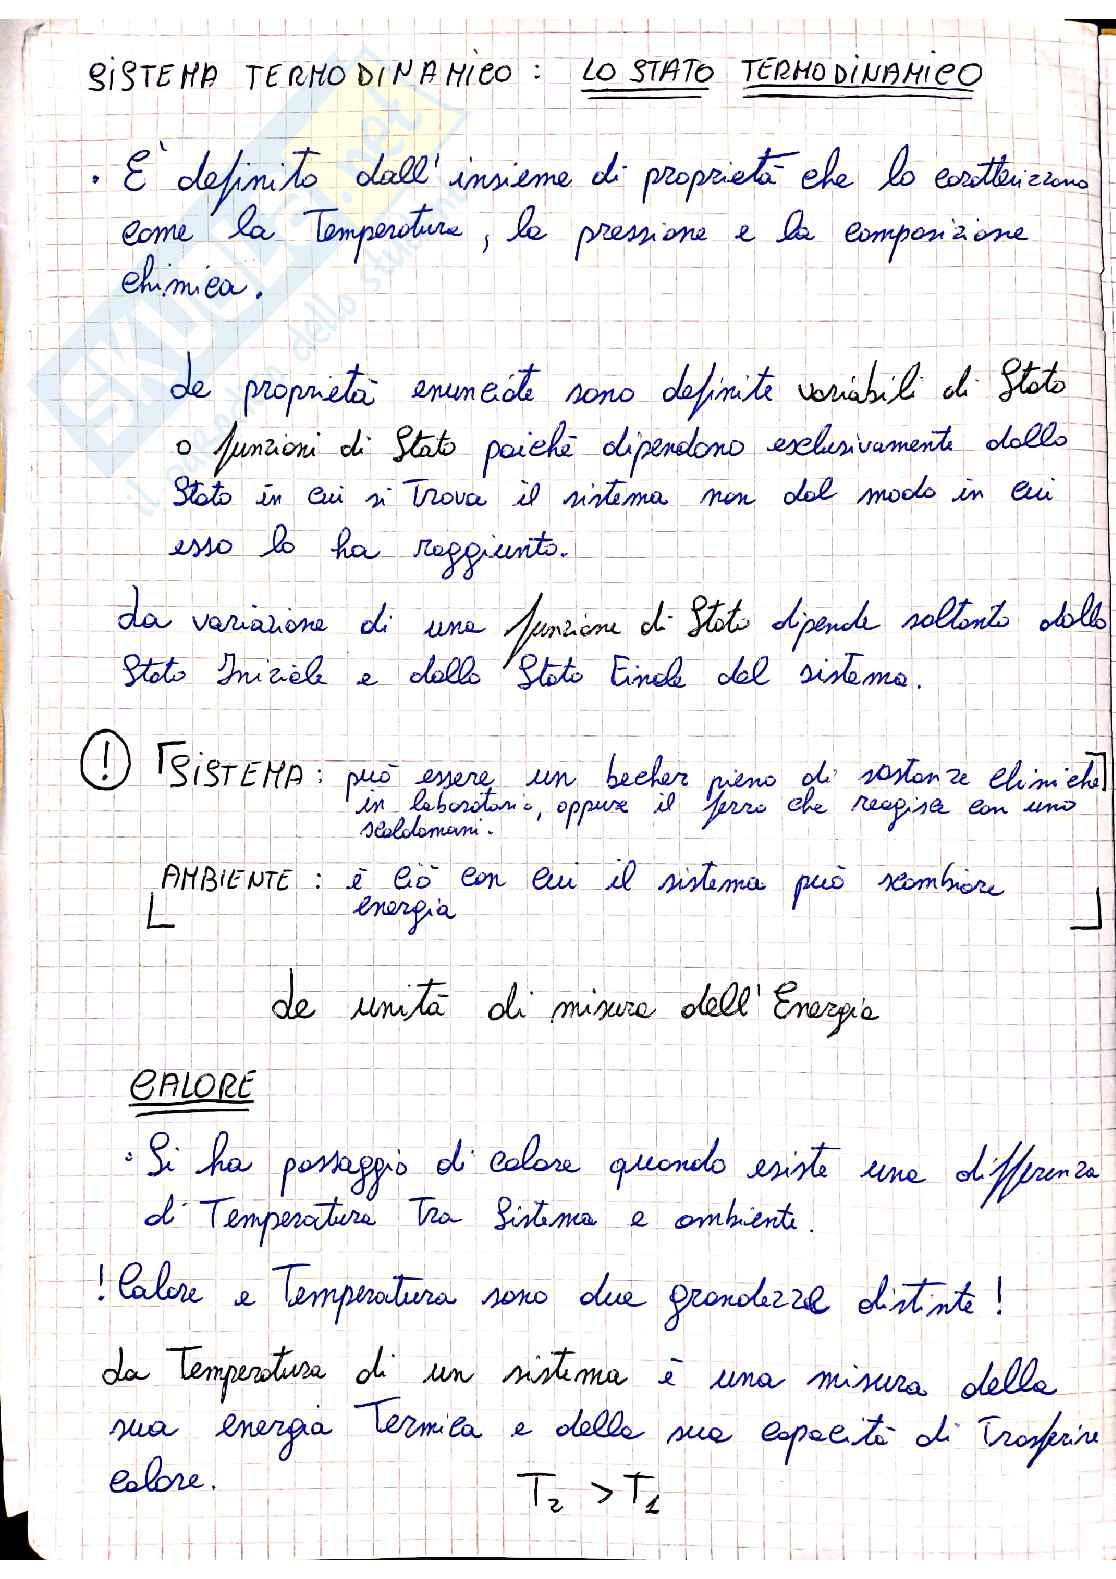 SISTEMA TERMODINAMICO: LO STATO TERMODINAMICO
• E' definito dall'insieme di proprietà che lo caratterizzano
come la Temperatura, la pressione e la composizione
chimica.
Le proprietà enunciate sono definite variabili di Stato
o funzioni di Stato poiché dipendono esclusivamente dallo
Stato in cui si Trova il sistema non dal modo in cui
esso lo ha raggiunto.
La variazione di una funzione di Stato dipende soltanto dallo
Stato Iniziale e dallo Stato Finale del sistema.
! SISTEMA: può essere un becher pieno di sostanze chimiche
in laboratorio, oppure il ferro che reagisce con uno
scaldamani.
AMBIENTE: è ciò con cui il sistema può scambiare
energia
Le unità di misura dell'Energia
CALORE
• Si ha passaggio di calore quando esiste una differenza
di Temperatura Tra Sistema e ambiente.
! Calore e Temperatura sono due grandezze distinte!
La Temperatura di un sistema è una misura della
sua energia Termica e della sua capacità di Trasferire
calore.
T₂ > T₁
SKUOLA.net
il paradiso dello studente